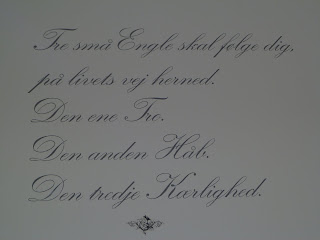 Tre små Engle skal følge dig,
på livets vej herned.
Den ene Tro.
Den anden Håb.
Den tredje Kærlighed.